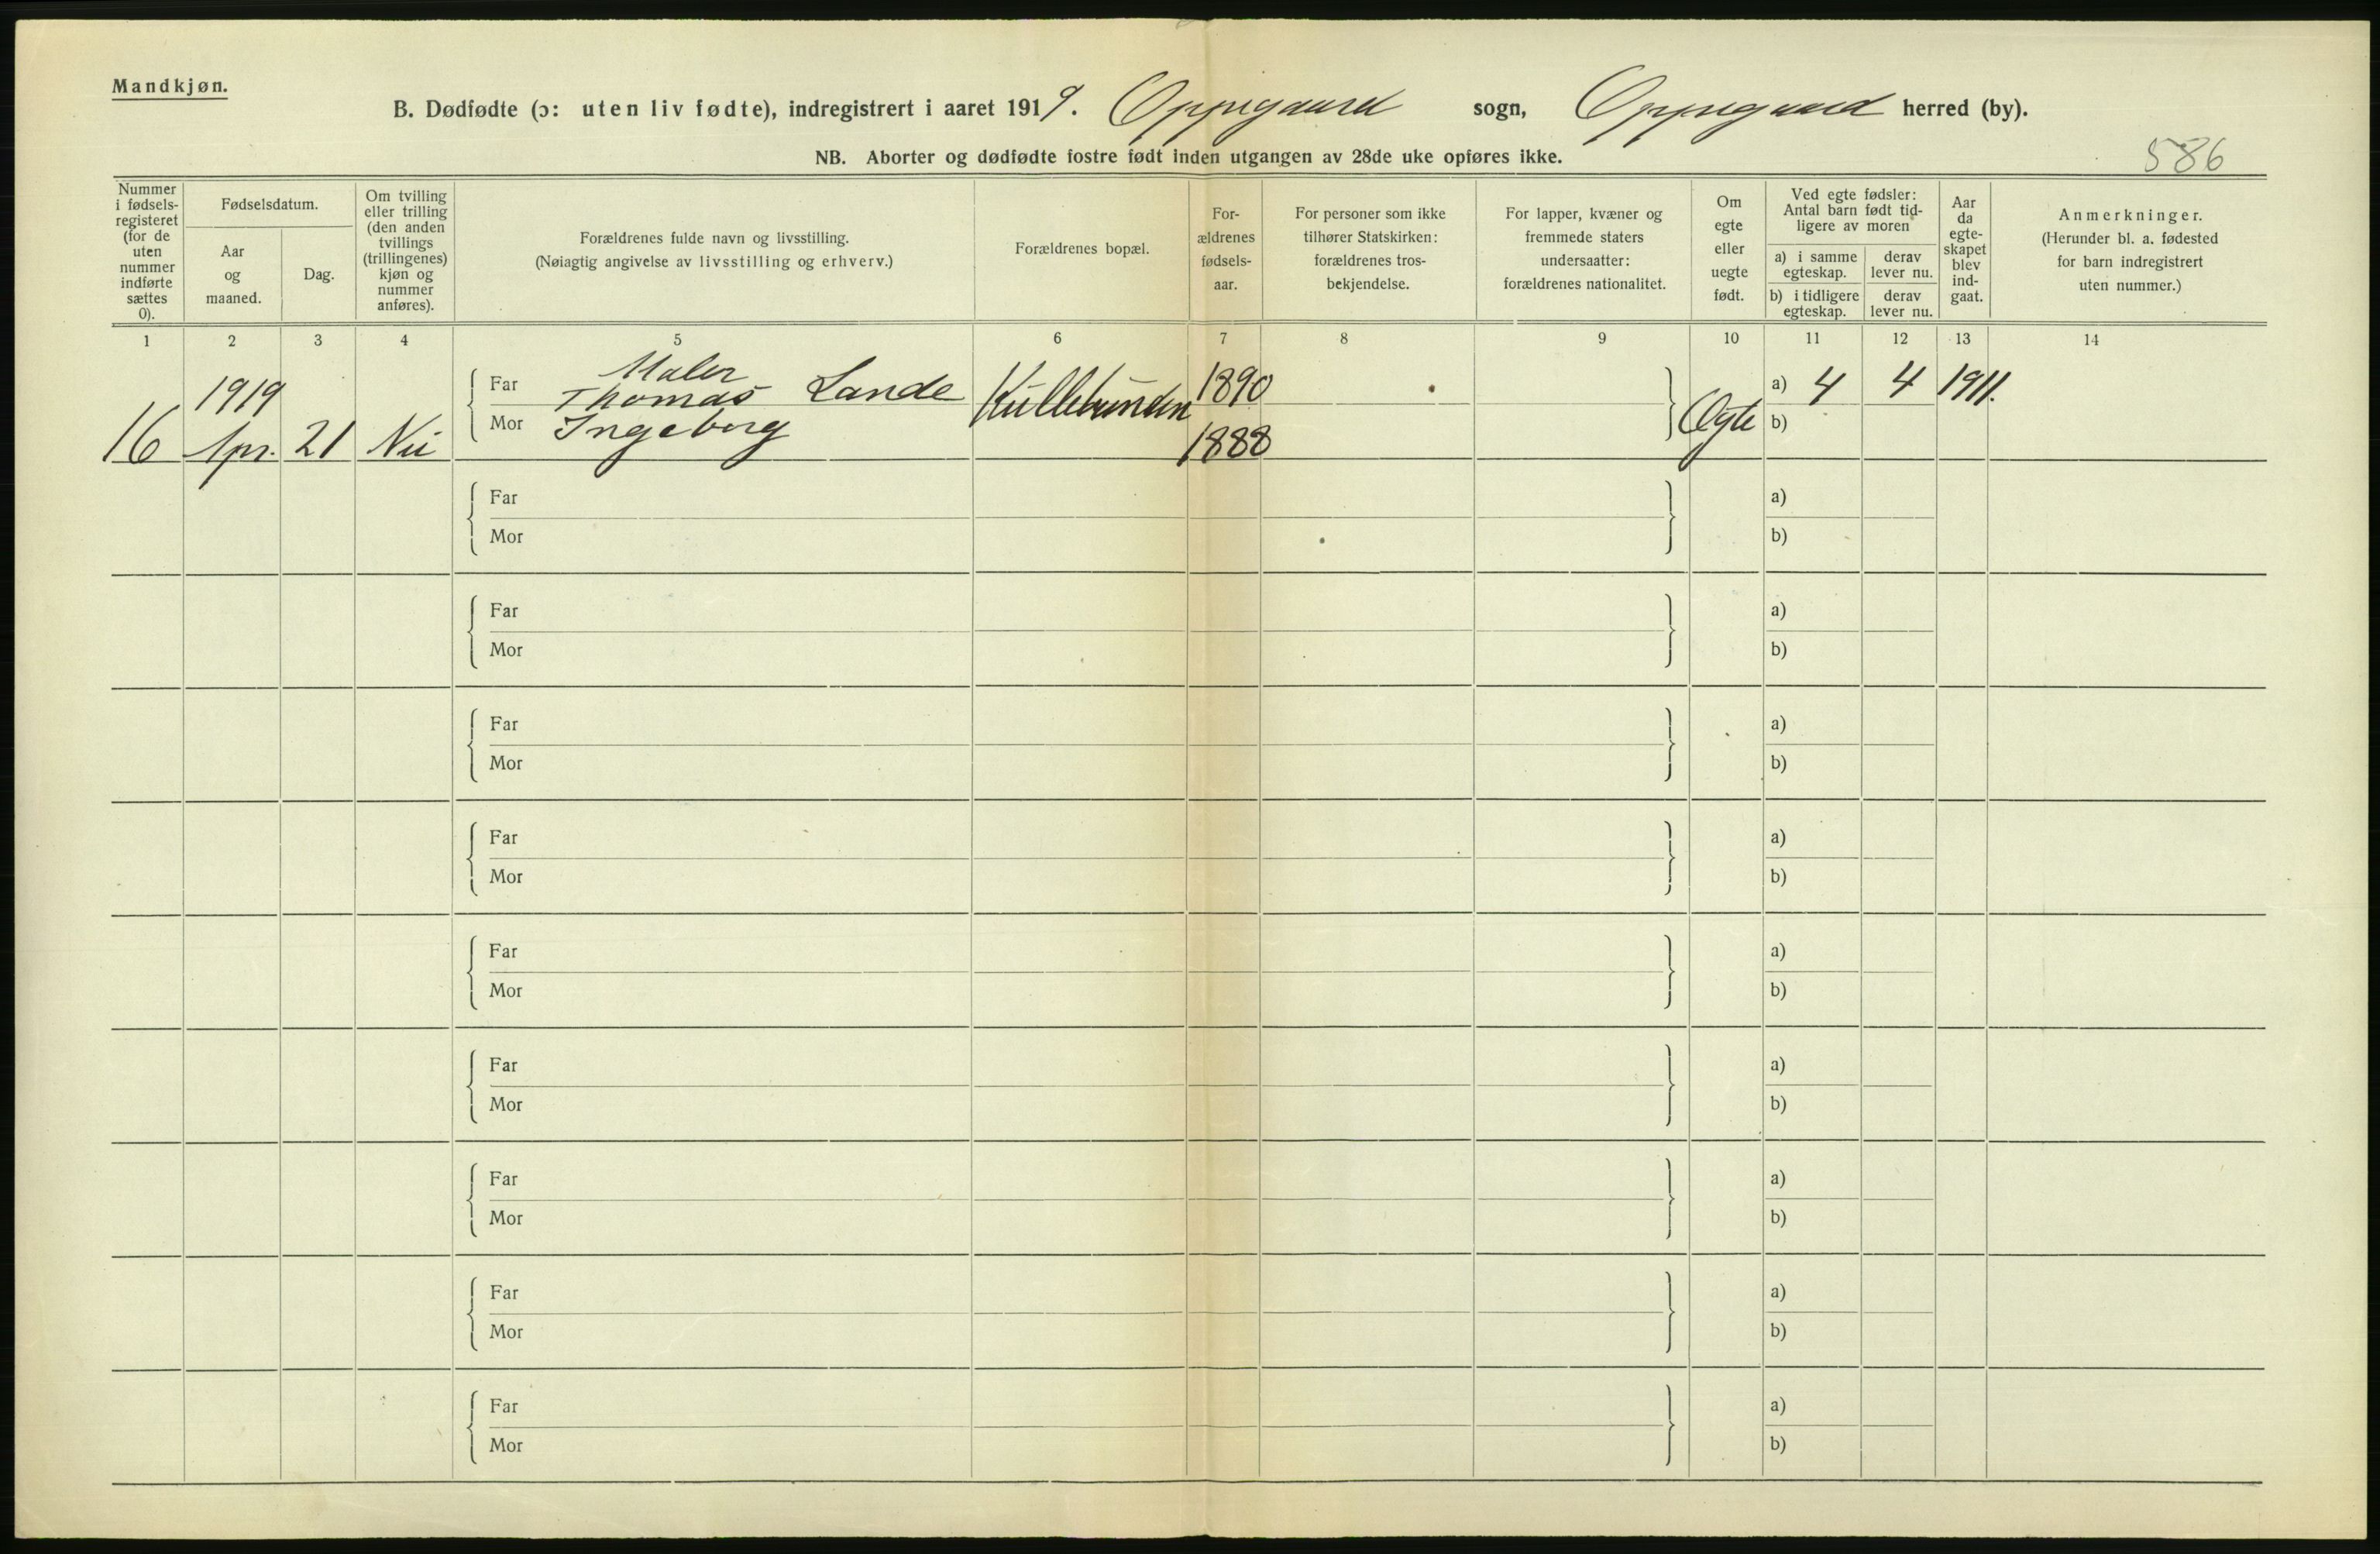 Mandkjøn.
B. Dødfødte (ɔ: uten liv fødte), indregistrert i aaret 1919. Oppegaard sogn, Oppegaard herred (by).
NB. Aborter og dødfødte fostre født inden utgangen av 28de uke opføres ikke.
586
Nummer i fødsels-registeret (for de uten nummer indførte sættes 0).
Fødselsdatum.
Aar og maaned.
Dag.
Om tvilling eller trilling (den anden tvillings (trillingenes) kjøn og nummer anføres).
Forældrenes fulde navn og livsstilling.
(Nøiagtig angivelse av livsstilling og erhverv.)
Forældrenes bopæl.
For-ældrenes fødsels-aar.
For personer som ikke tilhører Statskirken: forældrenes tros-bekjendelse.
For lapper, kvæner og fremmede staters undersaatter: forældrenes nationalitet.
Om egte eller uegte født.
Ved egte fødsler: Antal barn født tid-ligere av moren
a) i samme egteskap.
derav lever nu.
b) i tidligere egteskap.
derav lever nu.
Aar da egte-skapet blev ind-gaat.
Anmerkninger.
(Herunder bl. a. fødested for barn indregistrert uten nummer.)
1 2 3 4 5 6 7 8 9 10 11 12 13 14
Maler
1919 Far Thomas Lande Kullebunden 1890 a) 4 4 1911.
16 Apr. 21 Nei Mor Ingeborg 1888 Egte b)
Far a)
Mor b)
Far a)
Mor b)
Far a)
Mor b)
Far a)
Mor b)
Far a)
Mor b)
Far a)
Mor b)
Far a)
Mor b)
Far a)
Mor b)
Far a)
Mor b)